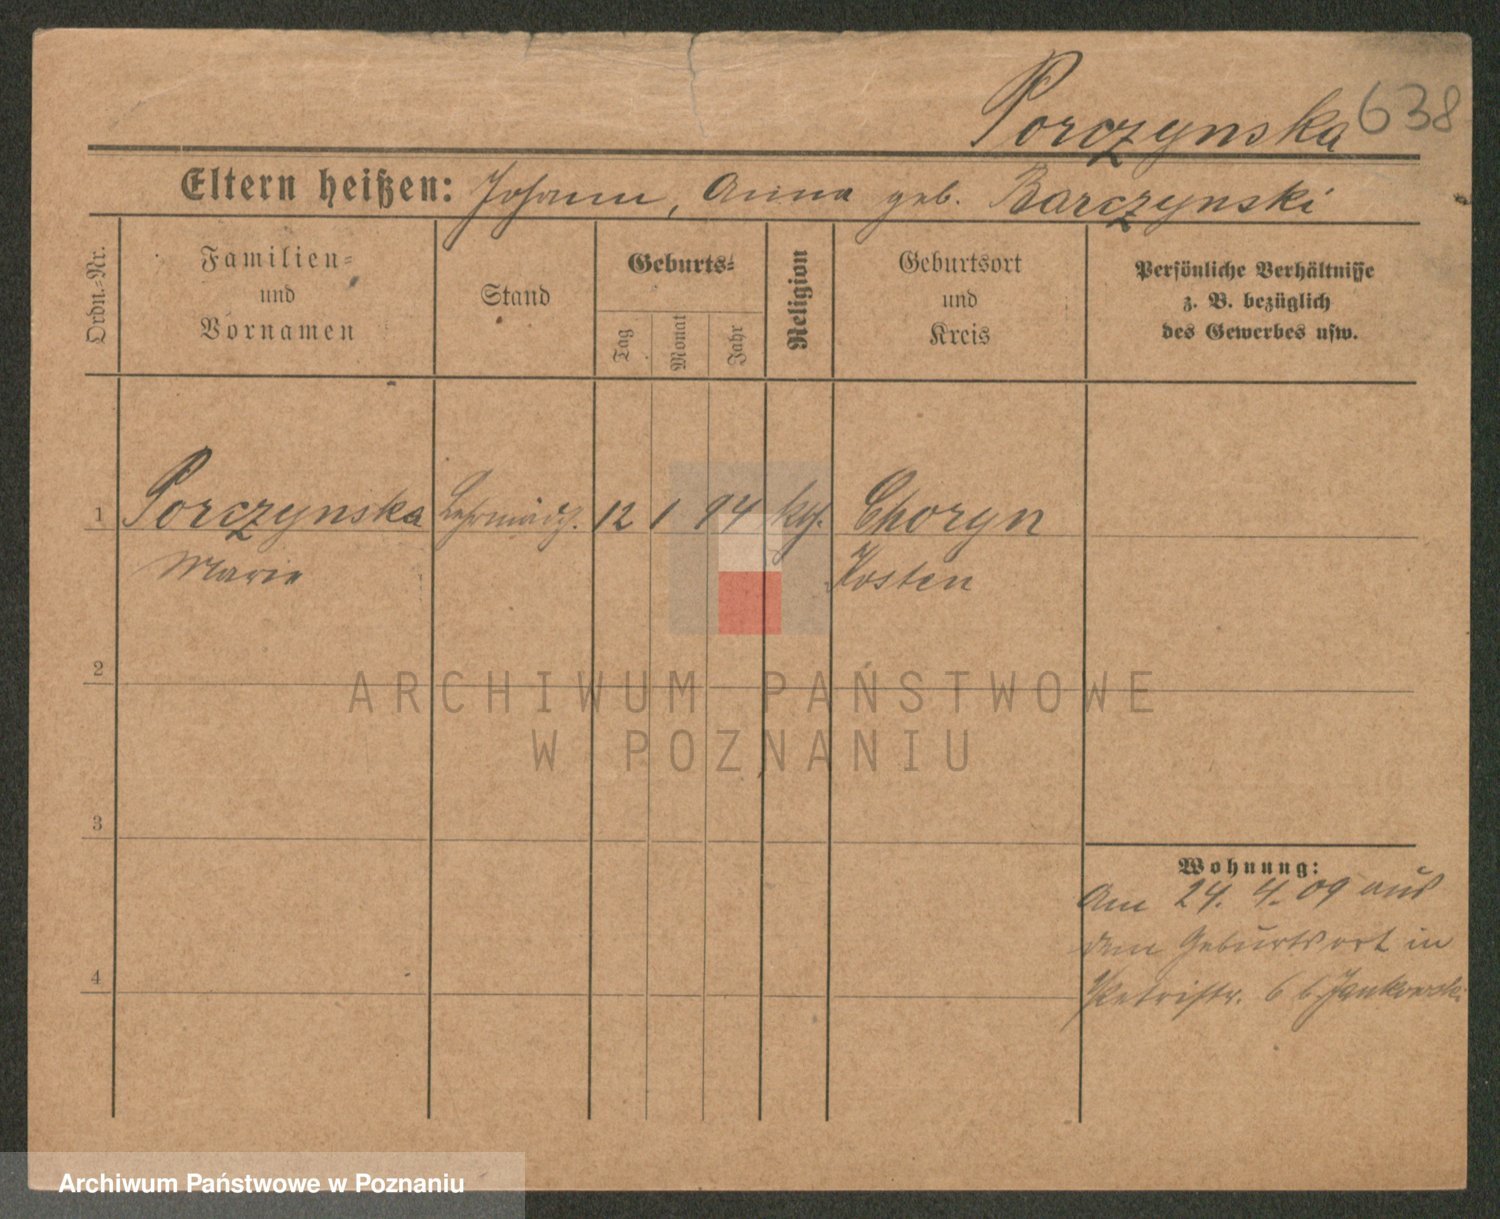 Porczynska 638
Eltern heißen: Johann, Anna geb. Barczynski
Ordn.-Nr.
Familien-
und
Vornamen
Stand
Geburts-
Tag
Monat
Jahr
Religion
Geburtsort
und
Kreis
Persönliche Verhältnisse
z. B. bezüglich
des Gewerbes usw.
1 Porczynska Lehrmädch. 12 1 94 kth. Choryn
Marie Kosten
2
3
4
Wohnung:
Am 24. 4. 09 aus
dem Geburtsort in
Petristr. 6 b. Jankowski
ARCHIWUM PAŃSTWOWE
W POZNANIU
Archiwum Państwowe w Poznaniu